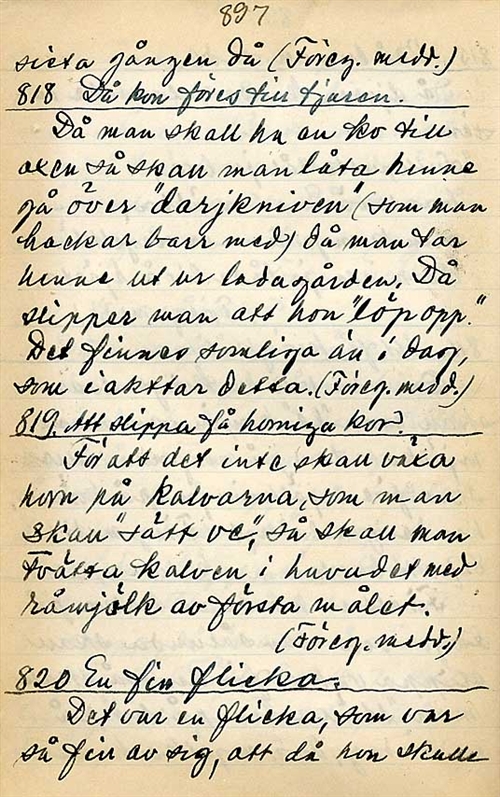 897
sista gången då (Föreg. medd.)
818 Då kon föres till tjuren.
Då man skall ha en ko till
oxen så skall man låta henne
gå över "darjkniven" (som man
hackar barr med) då man tar
henne ut ur ladugården. Då
slipper man att hon "löp opp."
Det finnes somliga än i dag,
som iakttar detta. (Föreg. medd.)
819. Att slippa få horniga kor?
För att det inte skall växa
horn på kalvarna, som man
skall "sätt ve", så skall man
tvätta kalven i huvudet med
råmjölk av första målet.
(Föreg. medd.)
820 En fin flicka.
Det var en flicka, som var
så fin av sig, att då hon skulle